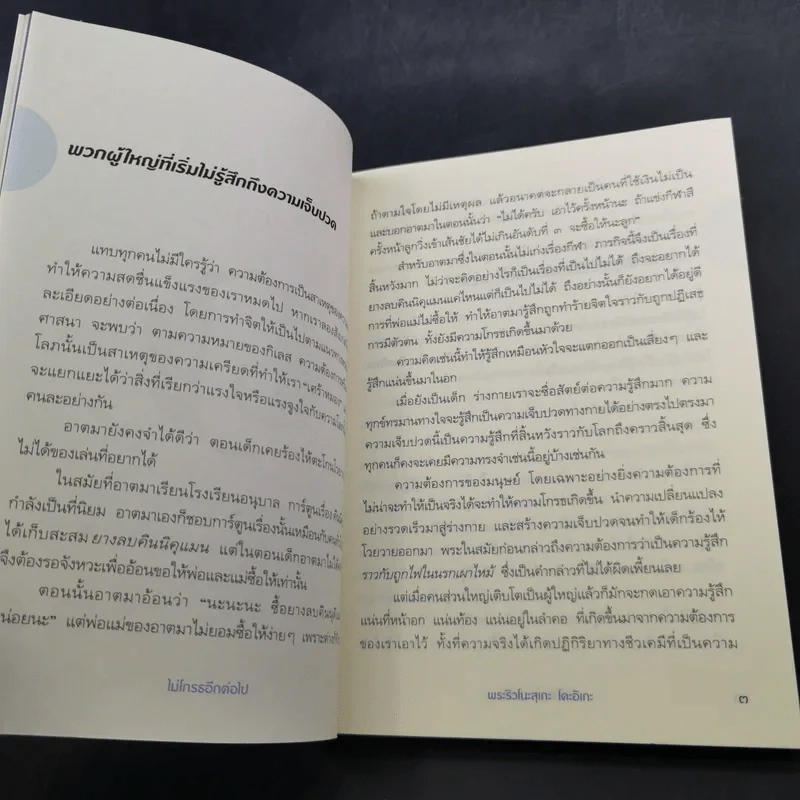 พวกผู้ใหญ่ที่เริ่มไม่รู้สึกถึงความเจ็บปวด
แทบทุกคนไม่มีใครรู้ว่า ความต้องการเป็นสาเหตุ
ทำให้ความสดชื่นแข็งแรงของเราหมดไป หากเราลอง
ละเอียดอย่างต่อเนื่อง โดยการทำจิตให้เป็นไปตามแนวทาง
ศาสนา จะพบว่า ตามความหมายของกิเลส ความต้องการ
โลภนั้นเป็นสาเหตุของความเครียดที่ทำให้เรา “เศร้าหมอง”
จะแยกแยะได้ว่าสิ่งที่เรียกว่าแรงใจหรือแรงจูงใจกับความโลภ
คนละอย่างกัน
อาตมายังคงจำได้ดีว่า ตอนเด็กเคยร้องไห้ตะโกน
ไม่ได้ของเล่นที่อยากได้
ในสมัยที่อาตมาเรียนโรงเรียนอนุบาล การ์ตูนเรื่อง
กำลังเป็นที่นิยม อาตมาเองก็ชอบการ์ตูนเรื่องนั้นเหมือนกับ
ได้เก็บสะสม ยางลบคินนิคุแมน แต่ในตอนเด็กอาตมาไม่ได้
จึงต้องรอจังหวะเพื่ออ้อนขอให้พ่อและแม่ซื้อให้เท่านั้น
ตอนนั้นอาตมาอ้อนว่า “นะนะนะ ซื้อยางลบคินนิคุ
น่อยนะ” แต่พ่อแม่ของอาตมาไม่ยอมซื้อให้ง่ายๆ เพราะ
ไม่โกรธอีกต่อไป
ถ้าตามใจโดยไม่มีเหตุผล แล้วอนาคตจะกลายเป็นคนที่ใช้เงินไม่เป็น
และบอกอาตมาในตอนนั้นว่า “ไม่ได้ครับ เอาไว้ครั้งหน้านะ ถ้าแข่งกีฬาสี
ครั้งหน้าลูกวิ่งเข้าเส้นชัยได้ไม่เกินอันดับที่ ๓ จะซื้อให้นะลูก”
สำหรับอาตมาซึ่งในตอนนั้นไม่เก่งเรื่องกีฬา ภารกิจนี้จึงเป็นเรื่องที่
สิ้นหวังมาก ไม่ว่าจะคิดอย่างไรก็เป็นเรื่องที่เป็นไปไม่ได้ ถึงจะอยากได้
ยางลบคินนิคุแมนแค่ไหนแต่ก็เป็นไปไม่ได้ ถึงอย่างนั้นก็ยังอยากได้อยู่ดี
การที่พ่อแม่ไม่ซื้อให้ ทำให้อาตมารู้สึกถูกทำร้ายจิตใจราวกับถูกปฏิเสธ
การมีตัวตน ทั้งยังมีความโกรธเกิดขึ้นมาด้วย
ความคิดเช่นนี้ทำให้รู้สึกเหมือนหัวใจจะแตกออกเป็นเสี่ยงๆ และ
รู้สึกแน่นขึ้นมาในอก
เมื่อยังเป็นเด็ก ร่างกายเราจะซื่อสัตย์ต่อความรู้สึกมาก ความ
ทุกข์ทรมานทางใจจะรู้สึกเป็นความเจ็บปวดทางกายได้อย่างตรงไปตรงมา
ความเจ็บปวดนี้เป็นความรู้สึกที่สิ้นหวังราวกับโลกถึงคราวสิ้นสุด ซึ่ง
ทุกคนก็คงจะเคยมีความทรงจำเช่นนี้อยู่บ้างเช่นกัน
ความต้องการของมนุษย์ โดยเฉพาะอย่างยิ่งความต้องการที่
ไม่น่าจะทำให้เป็นจริงได้จะทำให้ความโกรธเกิดขึ้น นำความเปลี่ยนแปลง
อย่างรวดเร็วมาสู่ร่างกาย และสร้างความเจ็บปวดจนทำให้เด็กร้องไห้
โวยวายออกมา พระในสมัยก่อนกล่าวถึงความต้องการว่าเป็นความรู้สึก
ราวกับถูกไฟในนรกเผาไหม้ ซึ่งเป็นคำกล่าวที่ไม่ได้ผิดเพี้ยนเลย
แต่เมื่อคนส่วนใหญ่เติบโตเป็นผู้ใหญ่แล้วก็มักจะกดเอาความรู้สึก
แน่นที่หน้าอก แน่นท้อง แน่นอยู่ในลำคอ ที่เกิดขึ้นมาจากความต้องการ
ของเราเอาไว้ ทั้งที่ความจริงได้เกิดปฏิกิริยาทางชีวเคมีที่เป็นความ
พระริวโนะสุเกะ โคะอิเกะ
๓